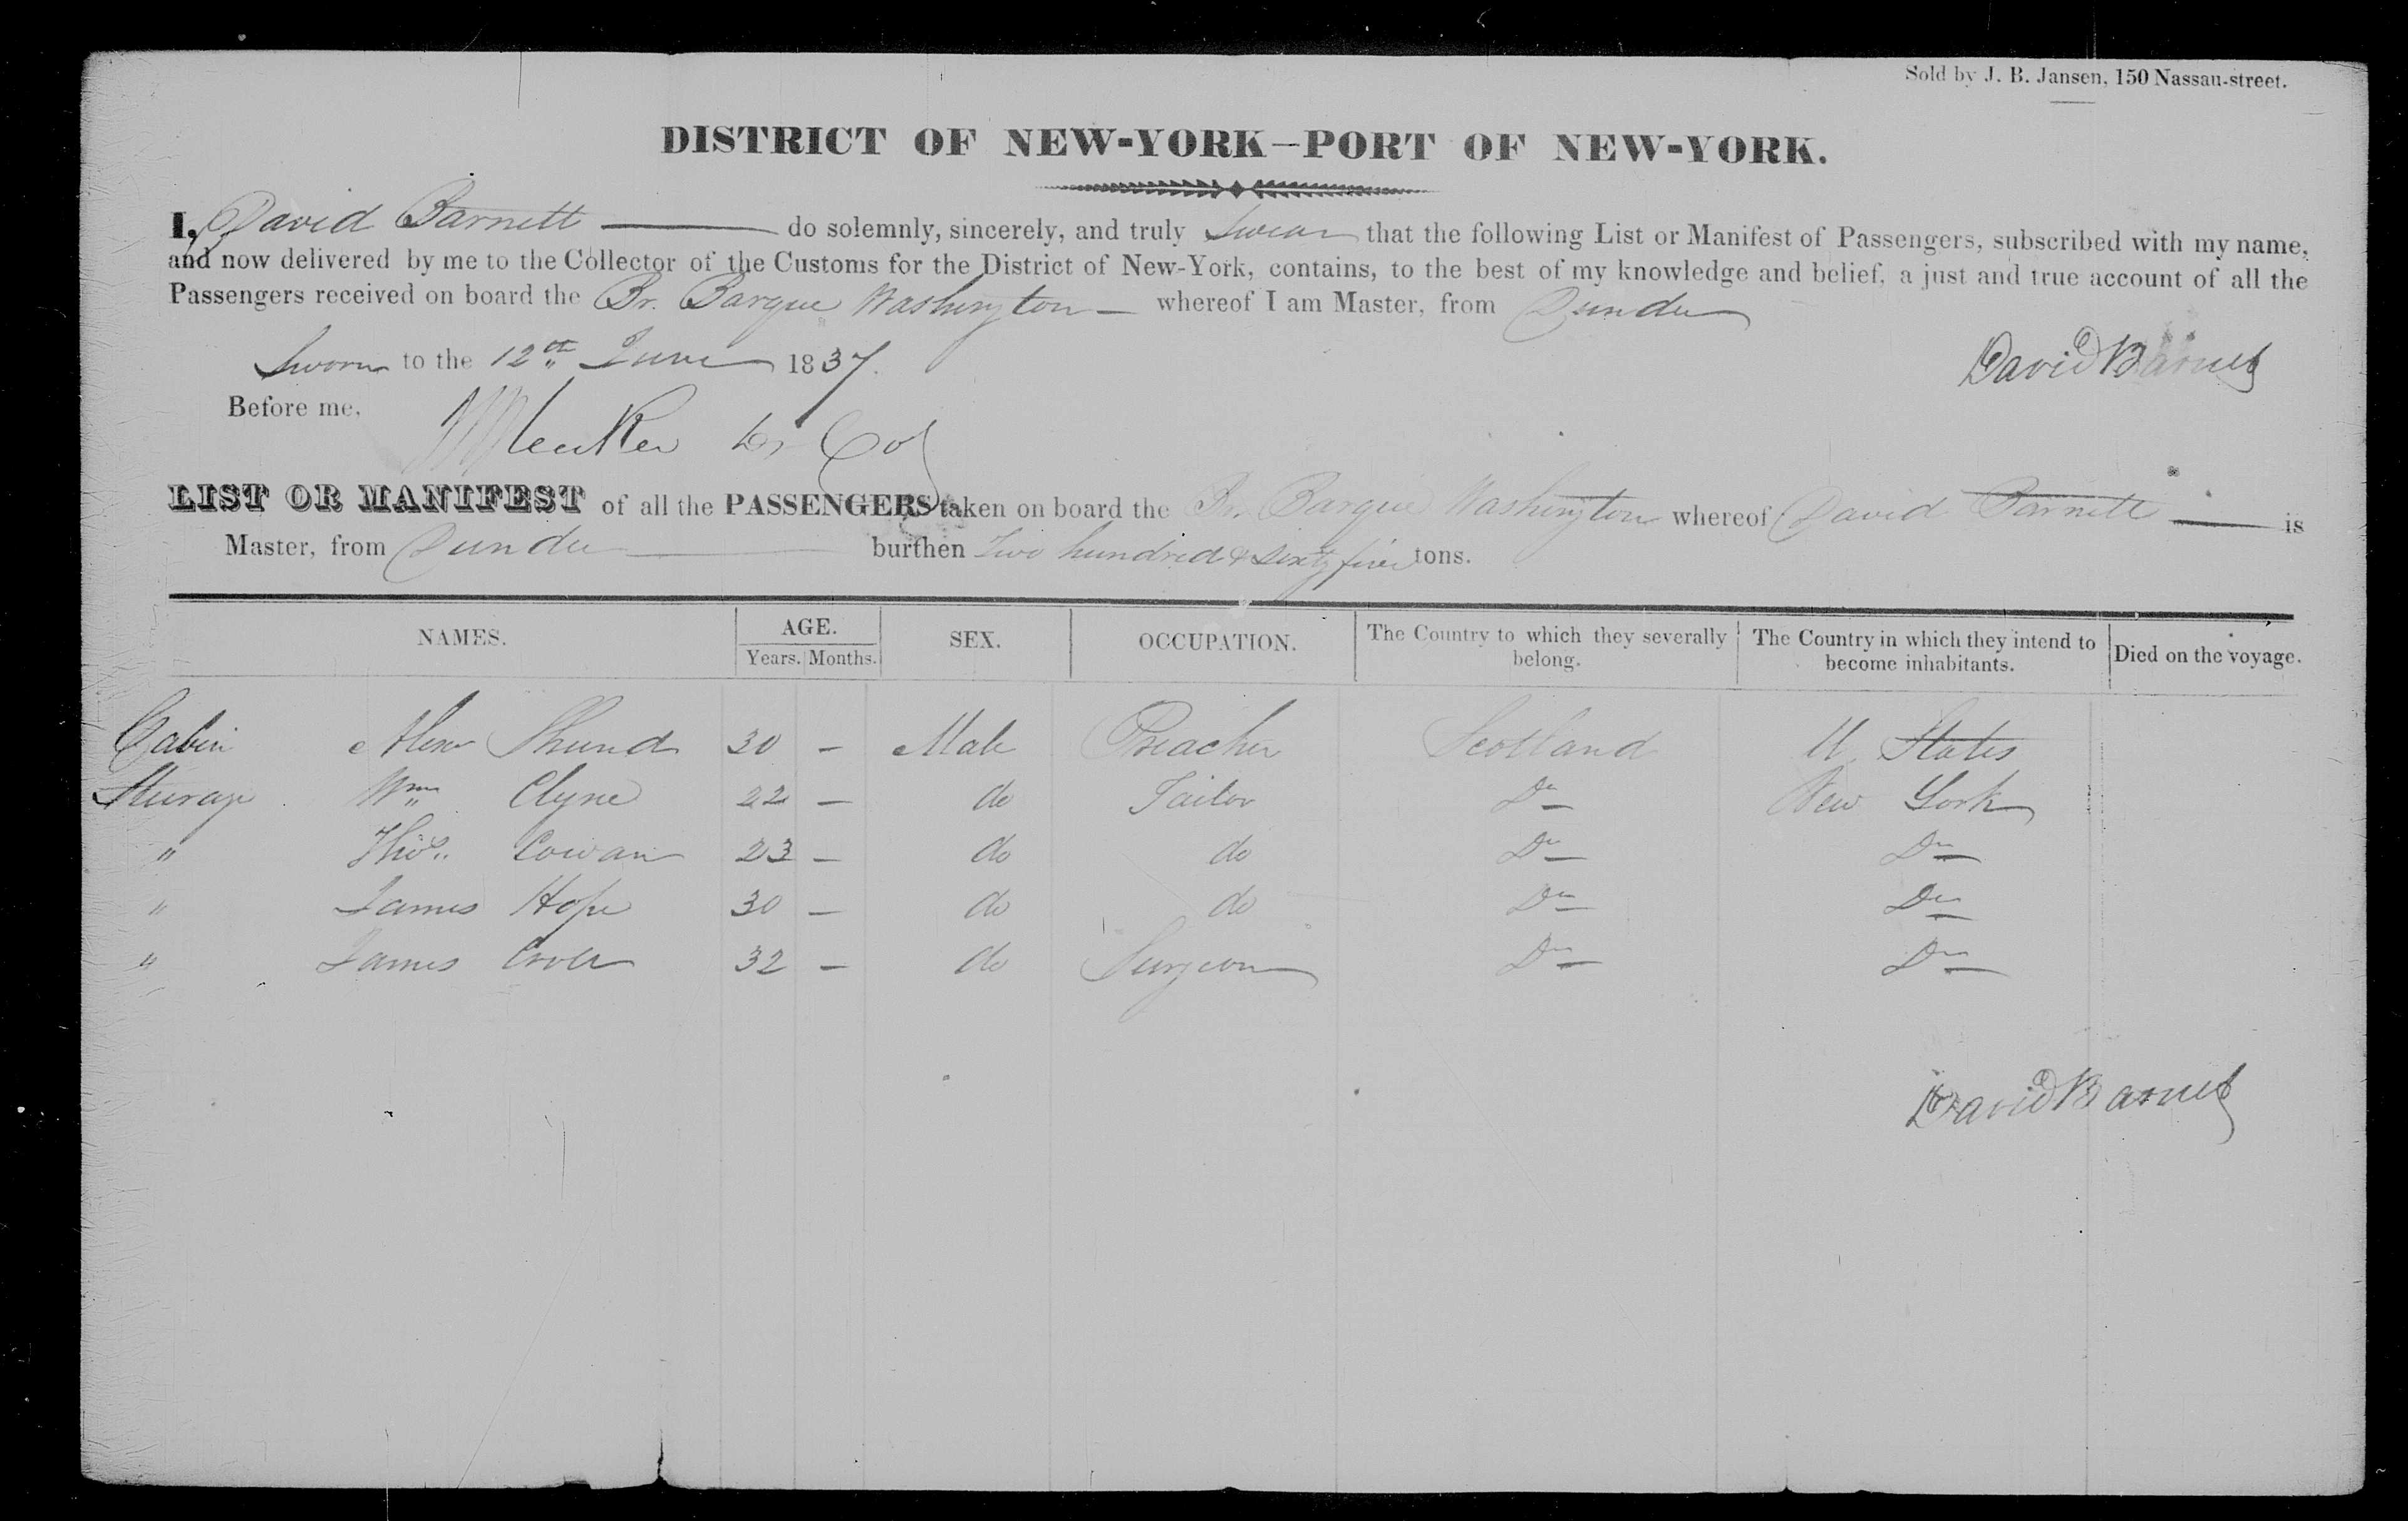 Sold by J. B. Jansen, 150 Nassau-street.
DISTRICT OF NEW-YORK—PORT OF NEW-YORK.
I, David Barnett — do solemnly, sincerely, and truly Swear that the following List or Manifest of Passengers, subscribed with my name,
and now delivered by me to the Collector of the Customs for the District of New-York, contains, to the best of my knowledge and belief, a just and true account of all the
Passengers received on board the Br. Barque Washington — whereof I am Master, from Dundee
Sworn to the 12th June 1837.
David Barnet
Before me,
LIST OR MANIFEST of all the PASSENGERS taken on board the Br. Barque Washington whereof David Barnett — is
Master, from Dundee burthen Two hundred & sixty five tons.
NAMES. AGE. Years. Months. SEX. OCCUPATION. The Country to which they severally belong. The Country in which they intend to become inhabitants. Died on the voyage.
Cabin Alexr 30 — Male Preacher Scotland U. States
Steerage Wm Clyne 22 — do Tailor Do New York
" Thos. Cowan 23 — do do Do Do
" James Hope 30 — do do Do Do
" James 32 — do Surgeon Do Do
David Barnet